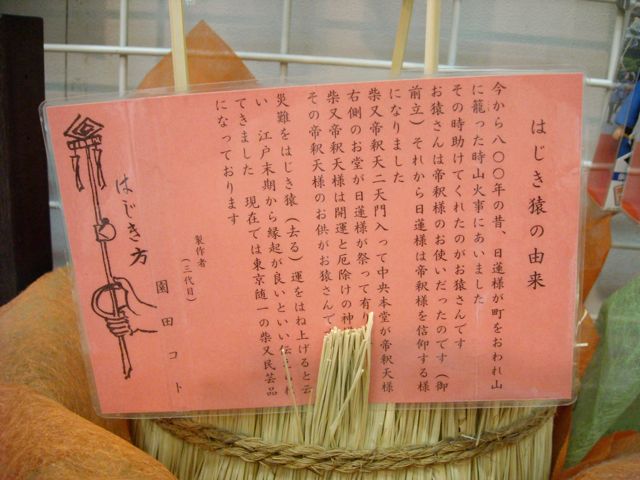 はじき猿の由来
今から八〇〇年の昔、日蓮様が町をおわれ山
に籠った時山火事にあいました
その時助けてくれたのがお猿さんです
お猿さんは帝釈様のお使いだったのです（御
前立）それから日蓮様は帝釈様を信仰する様
になりました
柴又帝釈天二天門入って中央本堂が帝釈天様
右側のお堂が日蓮様が祭って有り
柴又帝釈天様は開運と厄除けの神
その帝釈天様のお供がお猿さんで
災難をはじき猿（去る）運をはね上げると云
い 江戸末期から縁起が良いといい伝
てきました 現在では東京随一の柴又民芸品
になっております
製作者
（三代目）
園田コト
はじき方